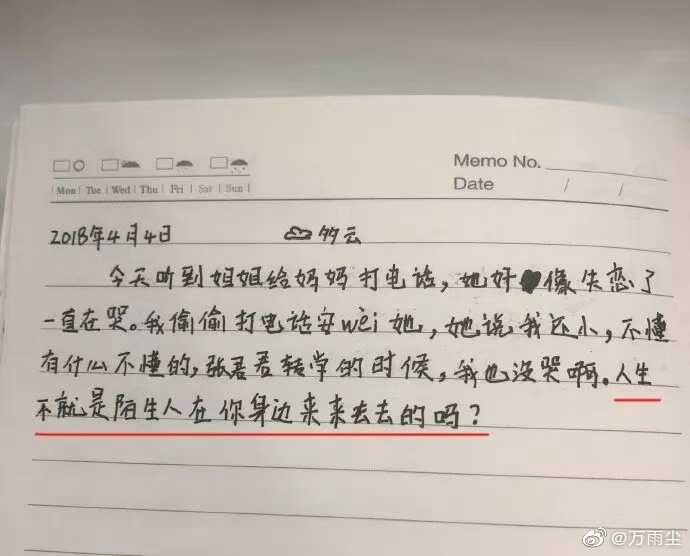 Memo No.
Date / /
Mon Tue Wed Thu Fri Sat Sun
2018年4月4日 多云
今天听到姐姐给妈妈打电话，她好像失恋了
一直在哭。我偷偷打电话安wèi她，她说我还小，不懂
有什么不懂的，张君君转学的时候，我也没哭啊。人生
不就是陌生人在你身边来来去去的吗？
@万雨尘